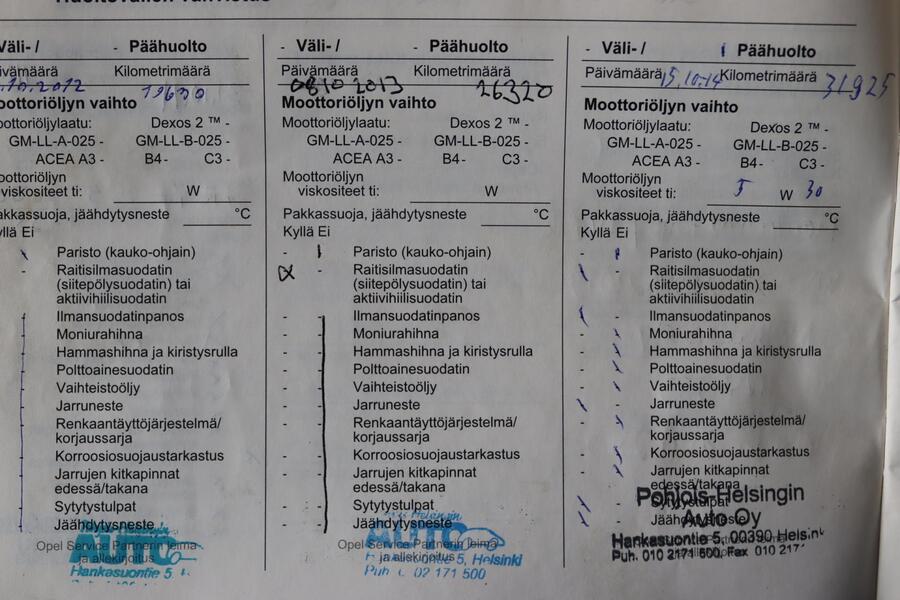 Väli- / - Päähuolto
Kilometrimäärä
.10.2012 19630
Moottoriöljyn vaihto
Moottoriöljylaatu: Dexos 2 ™ -
GM-LL-A-025 - GM-LL-B-025 -
ACEA A3 - B4- C3 -
Moottoriöljyn
viskositeet ti: W
Pakkassuoja, jäähdytysneste °C
Kyllä Ei
Paristo (kauko-ohjain)
- Raitisilmasuodatin
(siitepölysuodatin) tai
aktiivihiilisuodatin
Ilmansuodatinpanos
Moniurahihna
Hammashihna ja kiristysrulla
Polttoainesuodatin
Vaihteistoöljy
Jarruneste
Renkaantäyttöjärjestelmä/
korjaussarja
Korroosiosuojaustarkastus
Jarrujen kitkapinnat
edessä/takana
Sytytystulpat
Jäähdytysneste
AUTO
Opel Service Partnerin leima-
ja allekirjoitus
Hankasuontie 5,
- Väli- / - Päähuolto
Päivämäärä Kilometrimäärä
08 10 2013 26320
Moottoriöljyn vaihto
Moottoriöljylaatu: Dexos 2 ™ -
GM-LL-A-025 - GM-LL-B-025 -
ACEA A3 - B4- C3 -
Moottoriöljyn
viskositeet ti: W
Pakkassuoja, jäähdytysneste °C
Kyllä Ei
- Paristo (kauko-ohjain)
- Raitisilmasuodatin
(siitepölysuodatin) tai
aktiivihiilisuodatin
- - Ilmansuodatinpanos
- Moniurahihna
- - Hammashihna ja kiristysrulla
- - Polttoainesuodatin
- - Vaihteistoöljy
- - Jarruneste
- - Renkaantäyttöjärjestelmä/
korjaussarja
- - Korroosiosuojaustarkastus
- - Jarrujen kitkapinnat
edessä/takana
- - Sytytystulpat
- - Jäähdytysneste
Helsingin
AUTO
Opel Service Partnerin leima-
ja allekirjoitus
Hankasuontie 5, Helsinki
Puh 02 171 500
- Väli- / Päähuolto
Päivämäärä 15.10.14 Kilometrimäärä 31925
Moottoriöljyn vaihto
Moottoriöljylaatu: Dexos 2 ™ -
GM-LL-A-025 - GM-LL-B-025 -
ACEA A3 - B4- C3 -
Moottoriöljyn
viskositeet ti: 5 W 30
Pakkassuoja, jäähdytysneste °C
Kyllä Ei
- Paristo (kauko-ohjain)
- Raitisilmasuodatin
(siitepölysuodatin) tai
aktiivihiilisuodatin
- Ilmansuodatinpanos
- Moniurahihna
- Hammashihna ja kiristysrulla
- Polttoainesuodatin
- Vaihteistoöljy
- Jarruneste
- Renkaantäyttöjärjestelmä/
korjaussarja
- Korroosiosuojaustarkastus
- Jarrujen kitkapinnat
edessä/takana
- Sytytystulpat
- Jäähdytysneste
Pohjois-Helsingin
Auto Oy
Hankasuontie 5, 00390 Helsin
Puh. 010 2171 500, Fax 010 217